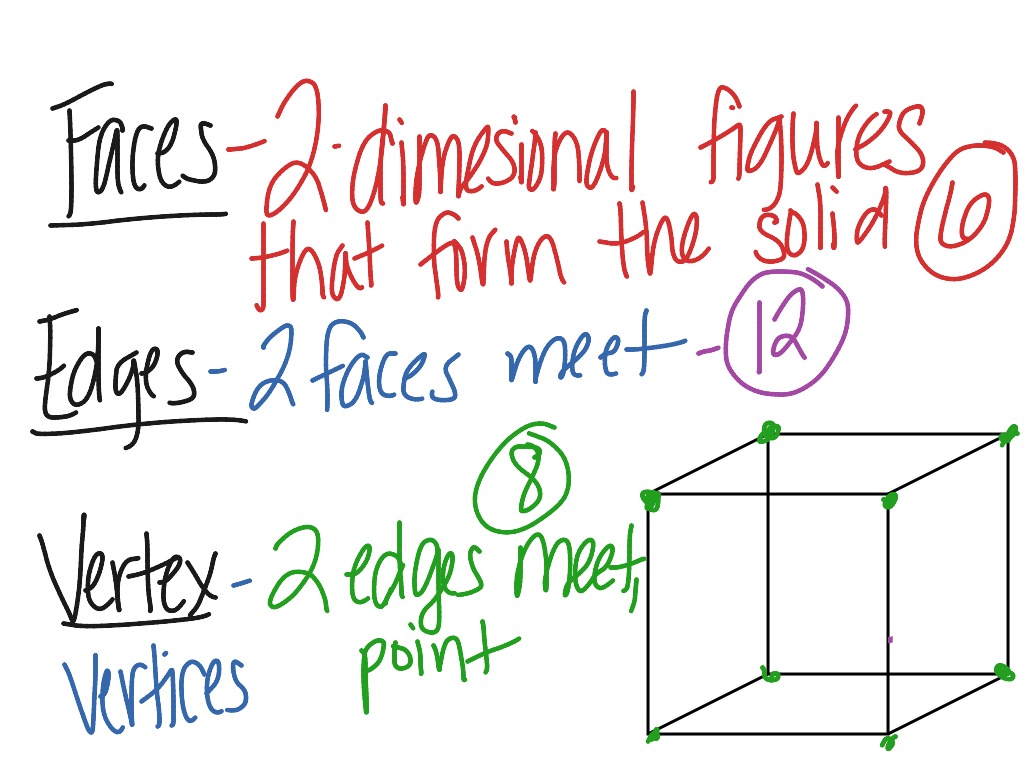 Faces - 2-dimesional figures
that form the solid 6
Edges - 2 faces meet - 12
8
Vertex - 2 edges meet,
point
vertices